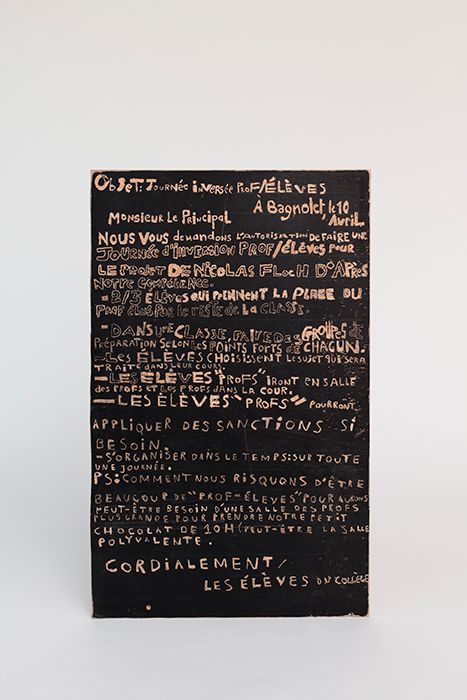 Objet: Journée inversée prof/élèves
À Bagnolet, le 10
Avril
Monsieur le Principal
Nous vous demandons l'autorisation de faire une
journée d'inversion prof/élèves pour
le projet de Nicolas Floch d'après
notre compétence.
- 2/3 élèves qui prennent la place du
prof élus par le reste de la classe.
- Dans une classe, faire des groupes de
préparation selon les points forts de chacun.
- Les élèves choisissent le sujet qui sera
traité dans leur cours.
- Les élèves "profs" iront en salle
des profs et les profs dans la cour.
- Les élèves "profs" pourront
appliquer des sanctions si
besoin.
- S'organiser dans le temps: sur toute
une journée.
PS: Comment nous risquons d'être
beaucoup de "prof-élèves" pour aurons
peut-être besoin d'une salle des profs
plus grande pour prendre notre petit
chocolat de 10H (peut-être la salle
polyvalente.
Cordialement,
Les élèves du collège